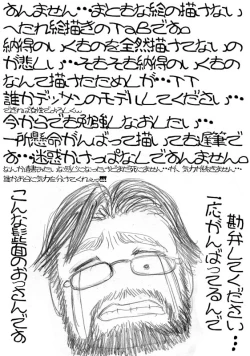 すんません…まともな絵の描けない
へたれ絵描きのTaBです。
納得のいくものを全然描けてないの
が悲しい…そもそも納得のいくもの
なんて描けたためしが…TT
誰かデッサンのモデルしてください…
今からでも勉強しなおしたい…
一所懸命がんばって描いても遅筆で
す…迷惑かけっぱなしですんません。
勘弁してください…
一応がんばってるんで
こんな髭面のおっさんです